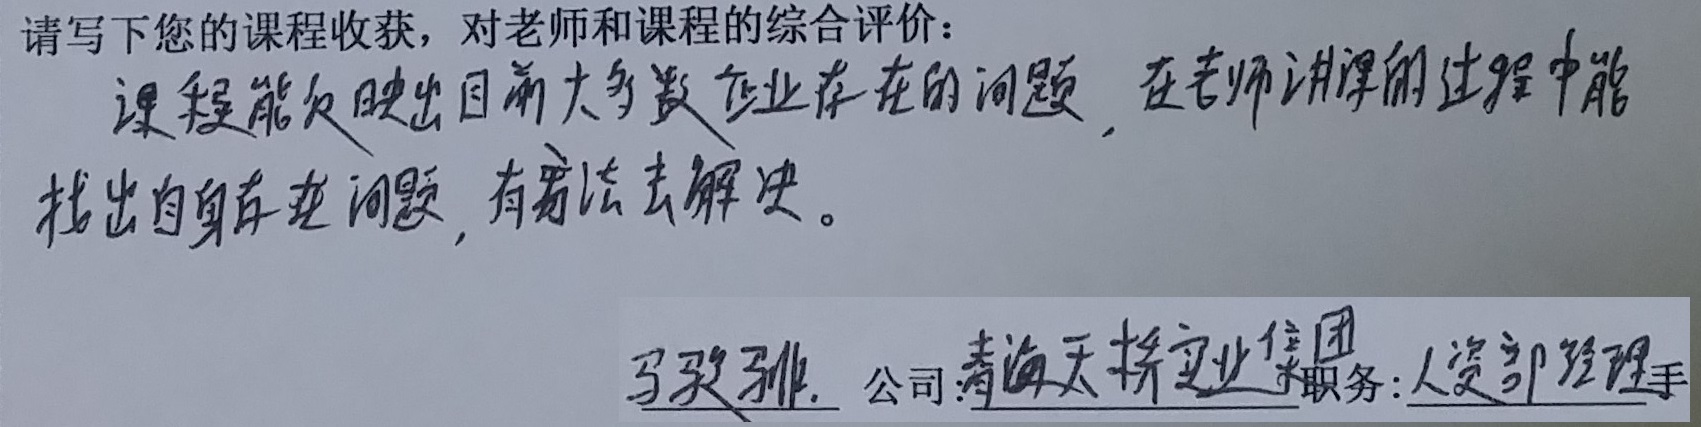 请写下您的课程收获，对老师和课程的综合评价：
课程能反映出目前大多数企业存在的问题，在老师讲课的过程中能
找出自身存在问题，有方法去解决。
马 公司：青海天桥实业集团 职务：人资部经理 手